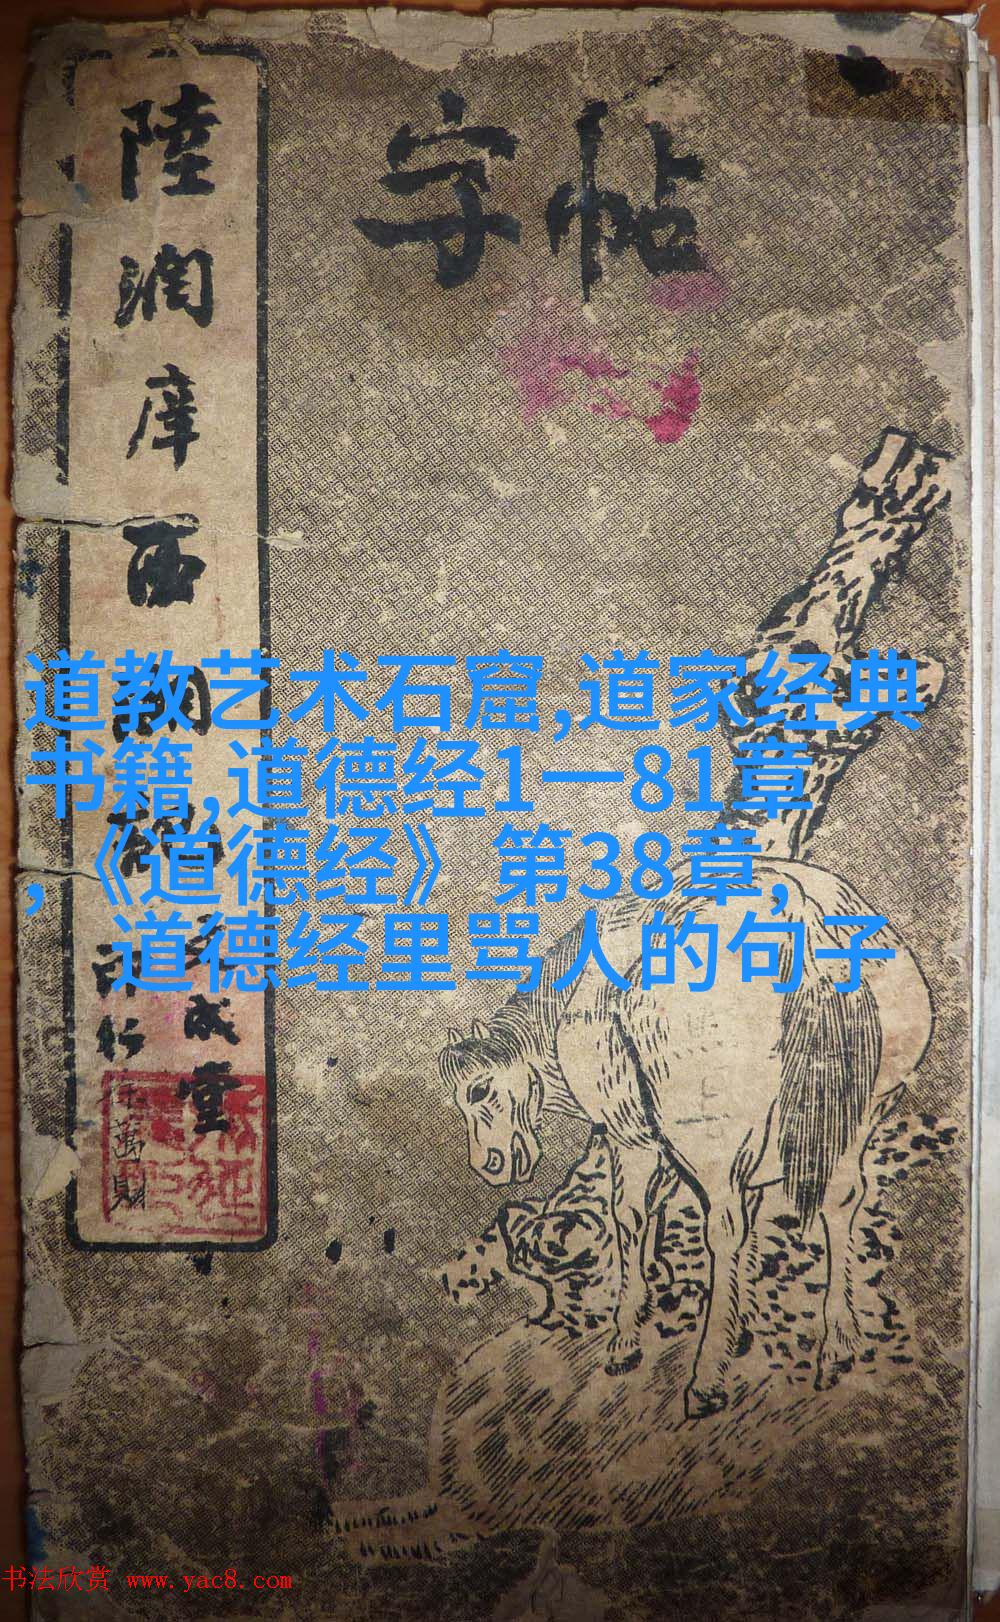 字帖
陸潤庠西湖
成堂
印行
萬財
道教艺术石窟,道家经典
书籍,道德经1一81章
,《道德经》第38章,
道德经里骂人的句子
书法欣赏 www.yac8.com